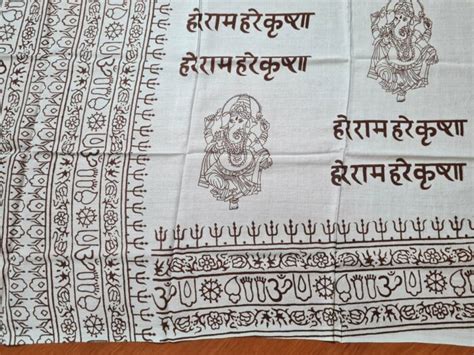 हरे राम हरे कृष्णा
हरे राम हरे कृष्णा
हरे राम हरे कृष्णा
हरे राम हरे कृष्णा
ॐ ॐ ॐ